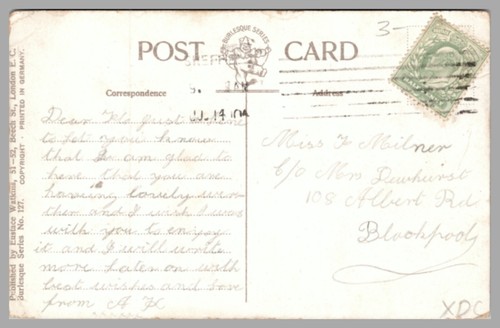 POST CARD
THE BURLESQUE SERIES
Correspondence
Address
3-
11.14
Dear Flo just a line
to let you know
that I am glad to
hear that you are
having lovely wea-
ther and I wish I was
with you to enjoy
it and I will write
more later on with
best wishes and love
from A
Miss F Milner
c/o Mrs Dewhirst
108 Albert Rd
Blackpool
XDC
Published by Eustace Watkins, 51-52, Beech St., London E. C.
Burlesque Series No. 127. COPYRIGHT · PRINTED IN GERMANY.